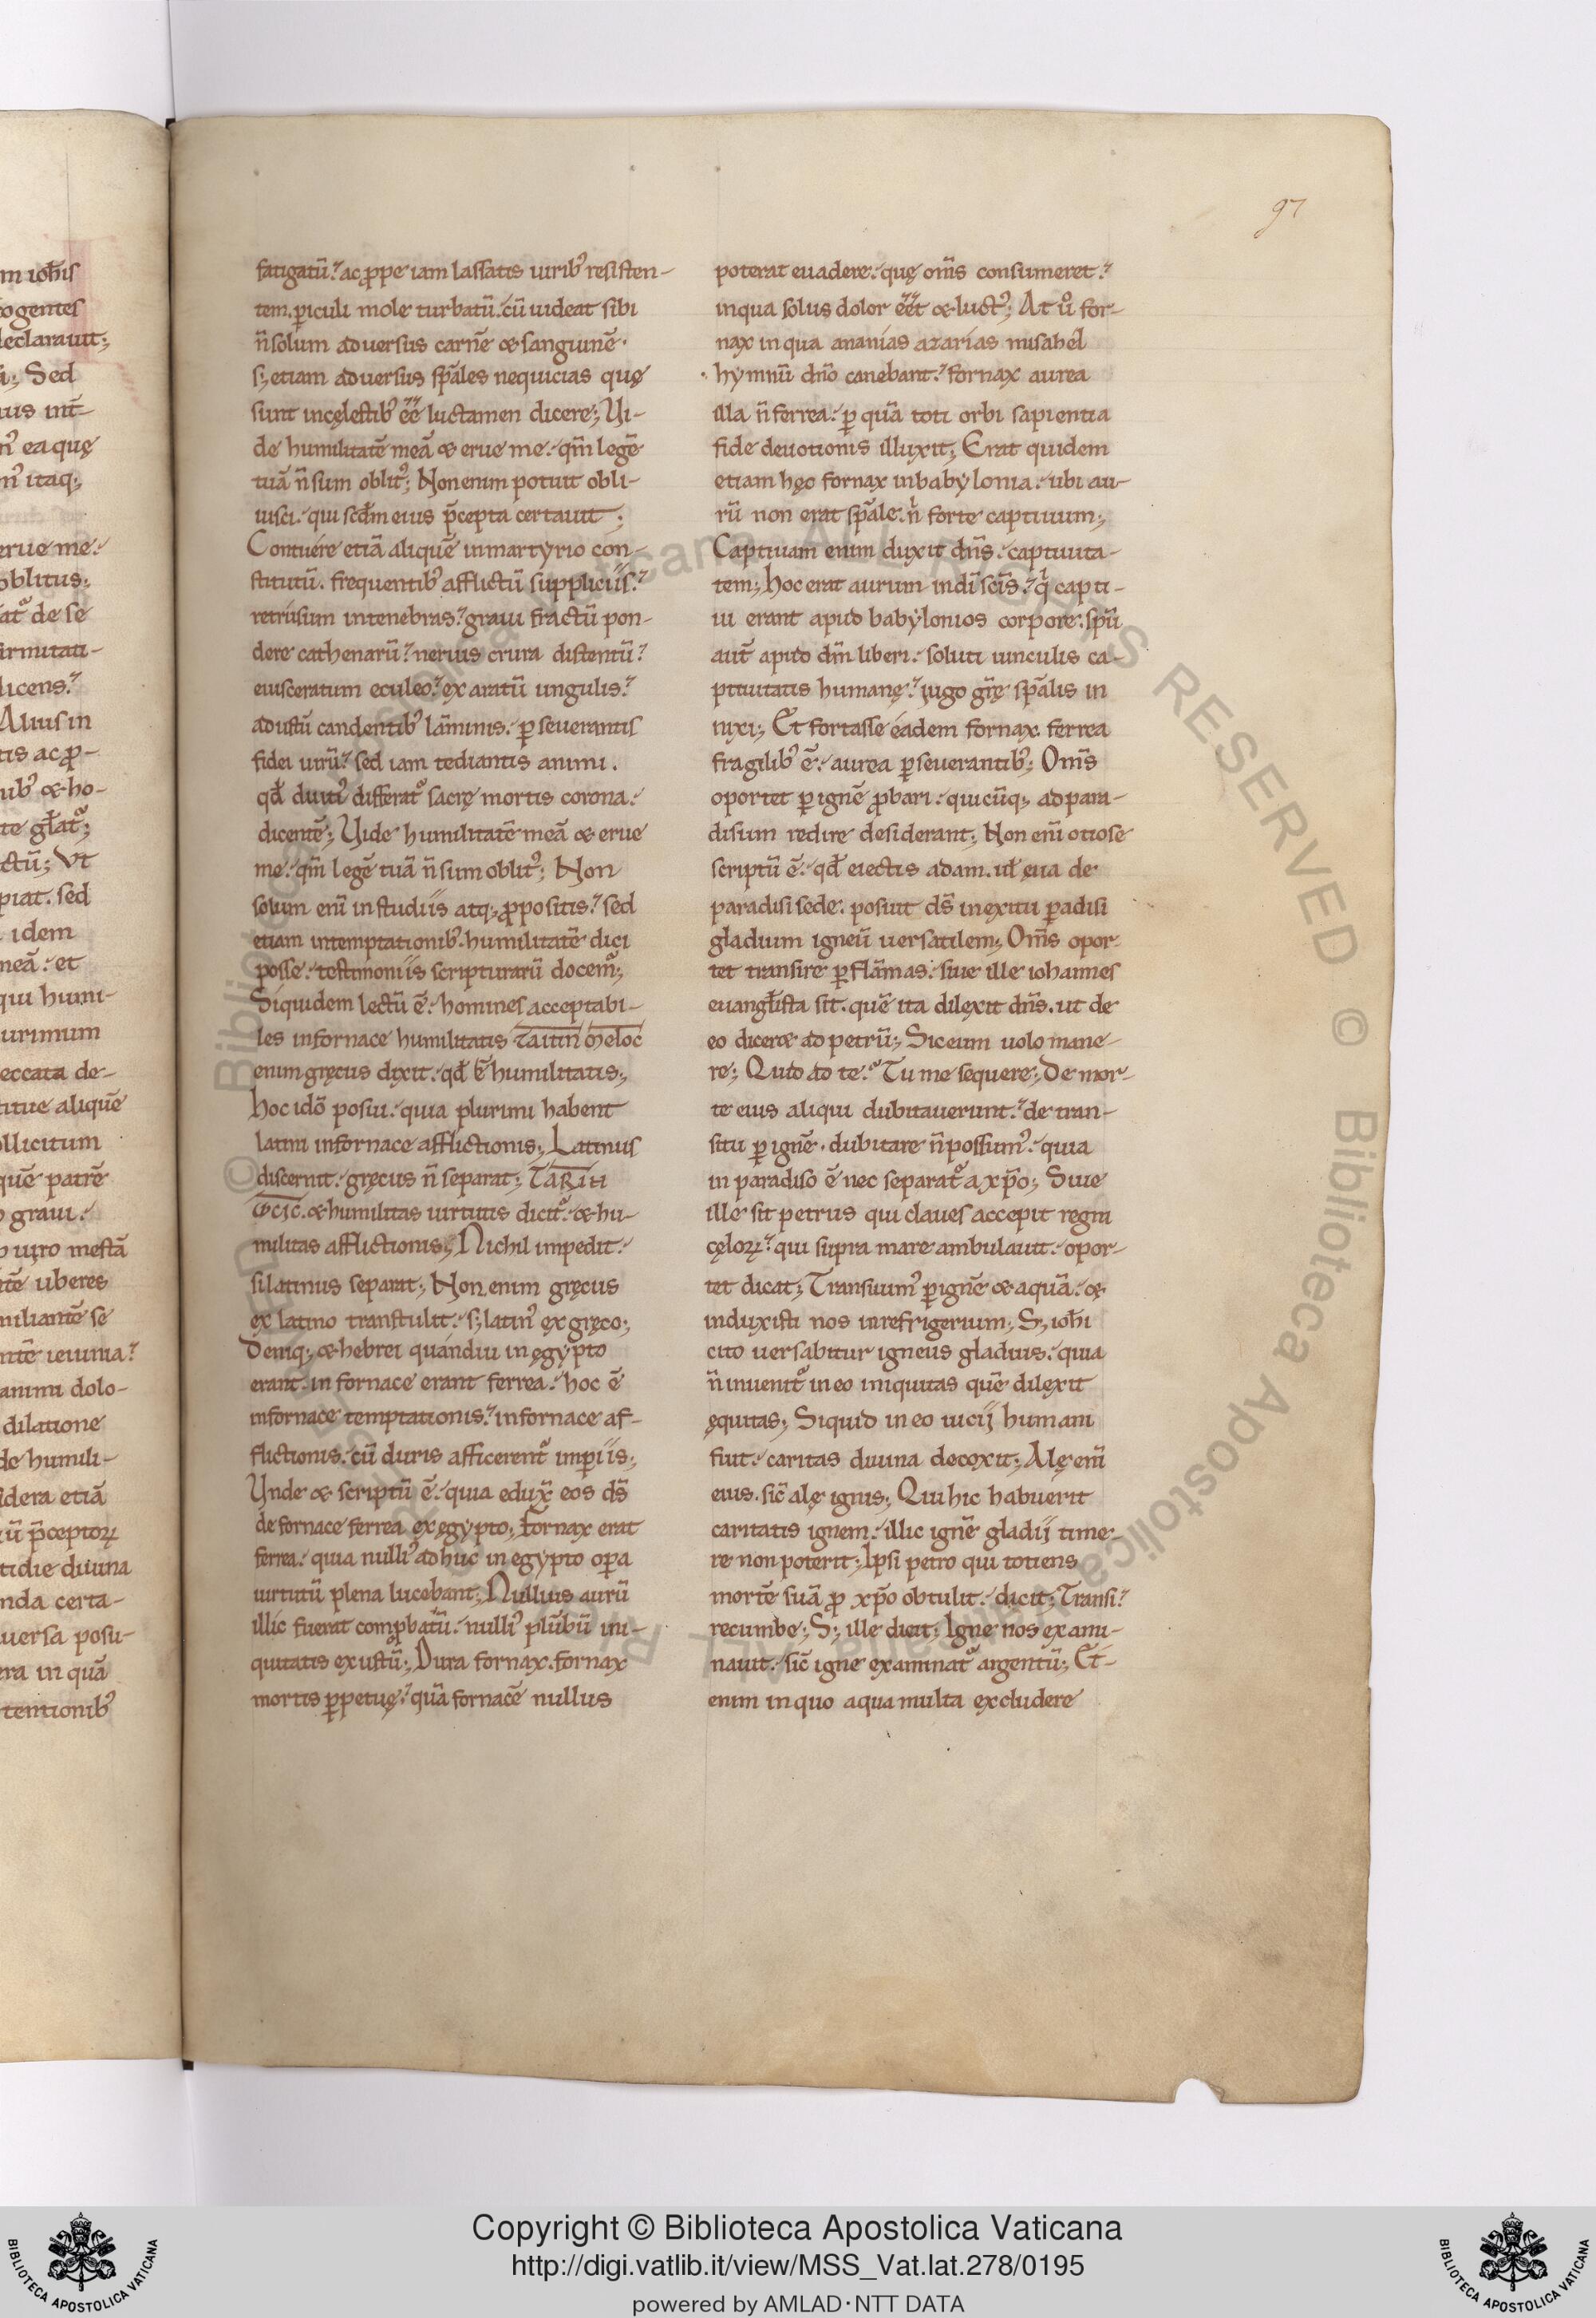 97
fatigatū. ac ꝓpe iam lassatis uirib' resisten-
tem. ꝑiculi mole turbatū. cū uideat sibi
n̄ solum aduersus carnē & sanguinē.
s; etiam aduersus sp̄ales nequicias quę
sunt incęlestib' eē̄ luctamen dicere; Ui-
de humilitatē meā & erue me. qm̄ legē
tuā n̄ sum oblit'; Non enim potuit obli-
uisci. qui scd̄m eius p̄cepta certauit;
Contuere etiā aliquē in martyrio con-
stitutū. frequentib' afflictū suppliciis.
retrusum in tenebras. graui fractū pon-
dere cathenarū. neruis crura distentū.
euisceratum eculeo. exaratū ungulis.
adustū candentib' lāminis. ꝑseuerantis
fidei uirū. sed iam tediantis animi.
qđ diuti' differat᷑ sacrę mortis corona.
dicentē; Uide humilitatē meā & erue
me. qm̄ legē tuā n̄ sum oblit'; Non
solum eni in studiis atq; ꝓpositis. sed
etiam in temptationib'. humilitatē dici
posse. testimoniis scripturarū docem᷑;
Siquidem lectū ē. homines acceptabi-
les in fornace humilitatis ταιπν̄ ωελοc
enim gręcus dixit. qđ ē humilitatis;
hoc idō posui. quia plurimi habent
latini in fornace afflictionis; Latinus
discernit. gręcus n̄ separat; ταπιν
ωcιc. & humilitas uirtutis dicit᷑. & hu-
militas afflictionis; Nichil impedit.
si latinus separat; Non enim gręcus
ex latino transtulit. s; latin' ex gręco;
Deniq; & hebrei quandiu in ęgypto
erant. in fornace erant ferrea. hoc ē
in fornace temptationis. in fornace af-
flictionis. cū duris afficerent᷑ imꝑiis;
Unde & scriptū ē. quia edux̄ eos dś
de fornace ferrea ex ęgypto; Fornax erat
ferrea. quia nulli' adhuc in egypto oꝑa
uirtutū plena lucebant; Nullius aurū
illic fuerat comꝓbatū. nulli' plūbū ini-
quitatis exustū; Dura fornax. fornax
mortis ꝑpetuę. quā fornacē nullus
poterat euadere. quę om̄s consumeret.
in qua solus dolor eēt & luct'; At ů for-
nax in qua ananias azarias misahel
hymnū dn̄o canebant. fornax aurea
illa n̄ ferrea. ꝑ quā toti orbi sapientia
fide deuotionis illuxit; Erat quidem
etiam hęc fornax in babylonia. ubi au-
rū non erat sp̄ale. n̄ forte captiuum;
Captiuam enim duxit dn̄s. captiuita-
tem; hoc erat aurum in dī scīs. q̇ capti-
ui erant apud babylonios corpore. sp̄ū
aut̄ apud dm̄ liberi. soluti uinculis ca-
ptiuitatis humanę. iugo gr̄ę sp̄alis in
nixi; Et fortasse eadem fornax ferrea
fragilib' ē. aurea ꝑseuerantib'; Om̄s
oportet ꝑ ignē ꝓbari. quicūq; ad para-
disum redire desiderant; Non eni otiose
scriptū ē. qđ eiectis adam. uł eua de
paradisi sede. posuit dś in exitu ꝑadisi
gladium igneū uersatilem; Om̄s opor-
tet transire ꝑ flāmas. siue ille iohannes
euangłista sit. quē ita dilexit dn̄s. ut de
eo diceret ad petrū; Sic eum uolo mane-
re; Quid ad te. Tu me sequere; De mor-
te eius aliqui dubitauerunt. de tran-
situ ꝑ ignē. dubitare n̄ possum'. quia
in paradiso ē nec separat᷑ a xp̄o; Siue
ille sit petrus qui claues accepit regni
cęloꝝ. qui supra mare ambulauit. opor-
tet dicat; Transiuim' ꝑ ignē & aquā. &
induxisti nos in refrigerium; S; ioh̄i
cito uersabitur igneus gladius. quia
n̄ inuenit᷑ in eo iniquitas quē dilexit
ęquitas; Siquid in eo uicij humani
fiut. caritas diuina decoxit; Alę eni
eius. sic̄ alę ignis; Qui hic habuerit
caritatis ignem. illic ignē gladij time-
re non poterit; Ipsi petro qui totiens
mortē suā ꝓ xp̄o obtulit. dicit; Transi.
recumbe; S; ille dicit; Igne nos exami-
nauit. sic̄ igne examinat᷑ argentū; Et-
enim in quo aqua multa excludere
m ioh̄is
eclarauit;
Sed
ea quę
itaq;
erue me.
oblitus.
de se
licens.
Alius in
tis ac ꝓ-
& ho-
piat. sed
idem
meā. et
qui humi-
urimum
eccata de-
aliquē
ollicitum
quē patrē
graui.
uiro mestā
uberes
miliantē se
ieiunia.
animi dolo-
dilatione
de humili-
etiā
p̄ceptoꝝ
tidie diuina
nda certa-
uersa posu-
in quā
tentionib'
© Biblioteca Apostolica Vaticana ALL RIGHTS RESERVED
Copyright © Biblioteca Apostolica Vaticana
http://digi.vatlib.it/view/MSS_Vat.lat.278/0195
powered by AMLAD·NTT DATA
BIBLIOTECA APOSTOLICA VATICANA
BIBLIOTECA APOSTOLICA VATICANA